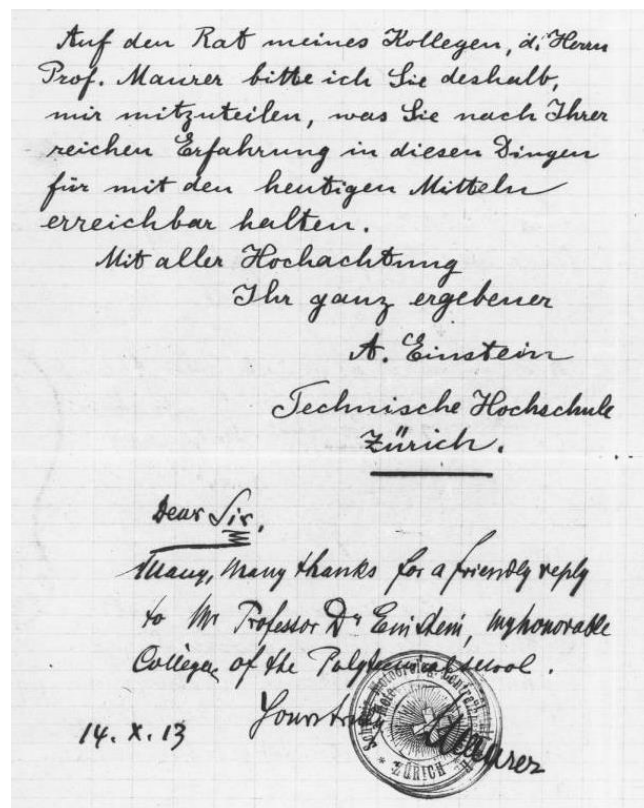 Auf den Rat meines Kollegen, d. Herrn
Prof. Maurer bitte ich Sie deshalb,
mir mitzuteilen, was Sie nach Ihrer
reichen Erfahrung in diesen Dingen
für mit den heutigen Mitteln
erreichbar halten.
Mit aller Hochachtung
Ihr ganz ergebener
A. Einstein
Technische Hochschule
Zürich.
Dear Sir,
Many, many thanks for a friendly reply
to Mr Professor Dr Einstein, my honorable
of the school.
Yours truly
14. X. 13
Maurer
ZÜRICH